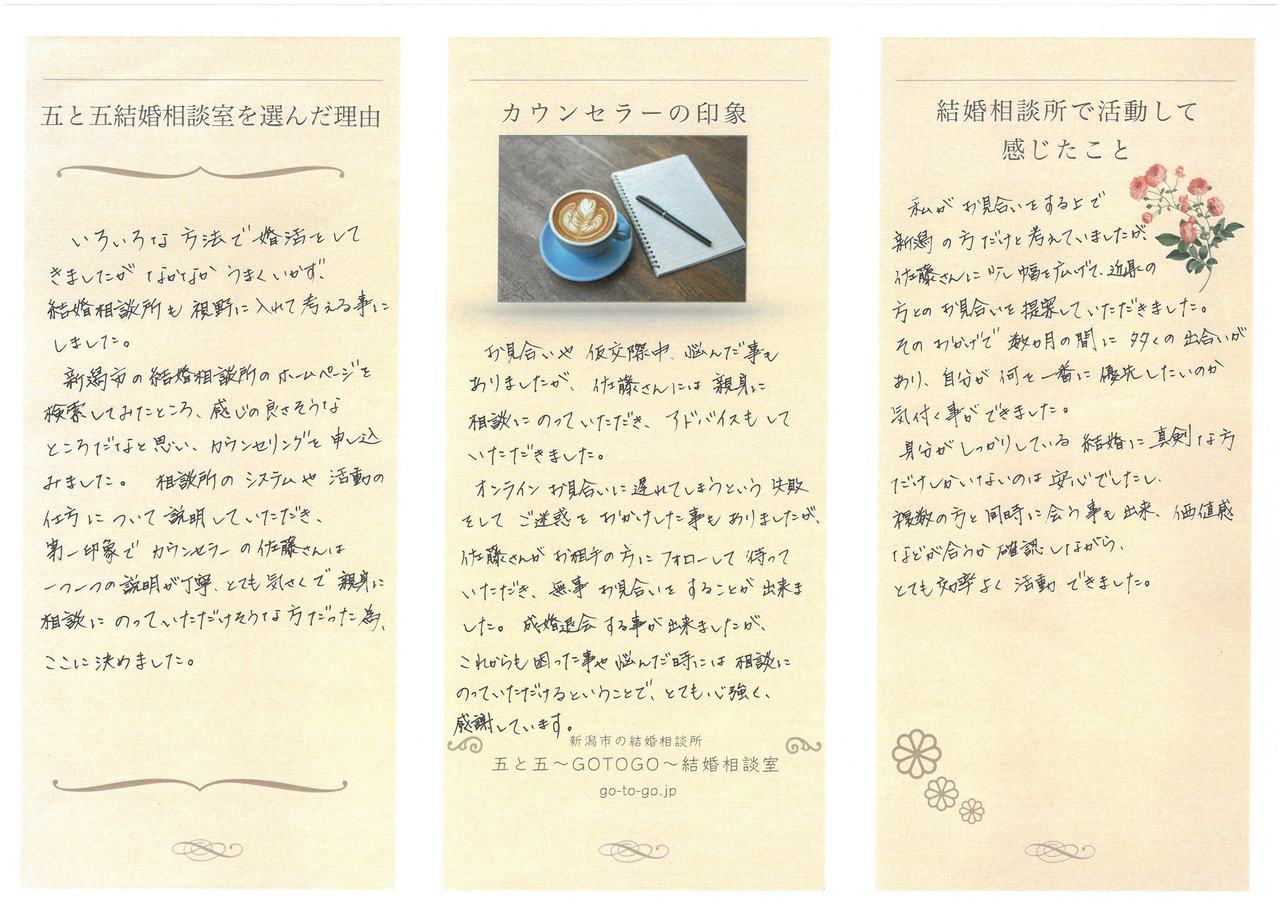 五と五結婚相談室を選んだ理由
いろいろな方法で婚活をして
きましたがなかなかうまくいかず、
結婚相談所も視野に入れて考える事に
しました。
新潟市の結婚相談所のホームページを
検索してみたところ、感じの良さそうな
ところだなと思い、カウンセリングを申し込
みました。 相談所のシステムや活動の
仕方について説明していただき、
第一印象でカウンセラーの佐藤さんは
一つ一つの説明が丁寧、とても気さくで親身に
相談にのっていただけそうな方だった為、
ここに決めました。
カウンセラーの印象
お見合いや仮交際中、悩んだ事も
ありましたが、佐藤さんには親身に
相談にのっていただき、アドバイスもして
いただきました。
オンラインお見合いに遅れてしまうという失敗
をしてご迷惑をおかけした事もありましたが、
佐藤さんがお相手の方にフォローして待って
いただき、無事お見合いをすることが出来ま
した。成婚退会する事が出来ましたが、
これからも困った事や悩んだ時には相談に
のっていただけるということで、とても心強く、
感謝しています。
新潟市の結婚相談所
五と五～GOTOGO～結婚相談室
go-to-go.jp
結婚相談所で活動して
感じたこと
私がお見合いをする上で
新潟の方だけと考えていましたが、
佐藤さんに少し幅を広げて、近県の
方とのお見合いを提案していただきました。
そのおかげで数カ月の間に多くの出合いが
あり、自分が何を一番に優先したいのか
気付く事ができました。
身分がしっかりしている結婚に真剣な方
だけしかいないのは安心でしたし、
複数の方と同時に会う事も出来、価値感
などが合うか確認しながら、
とても効率よく活動できました。